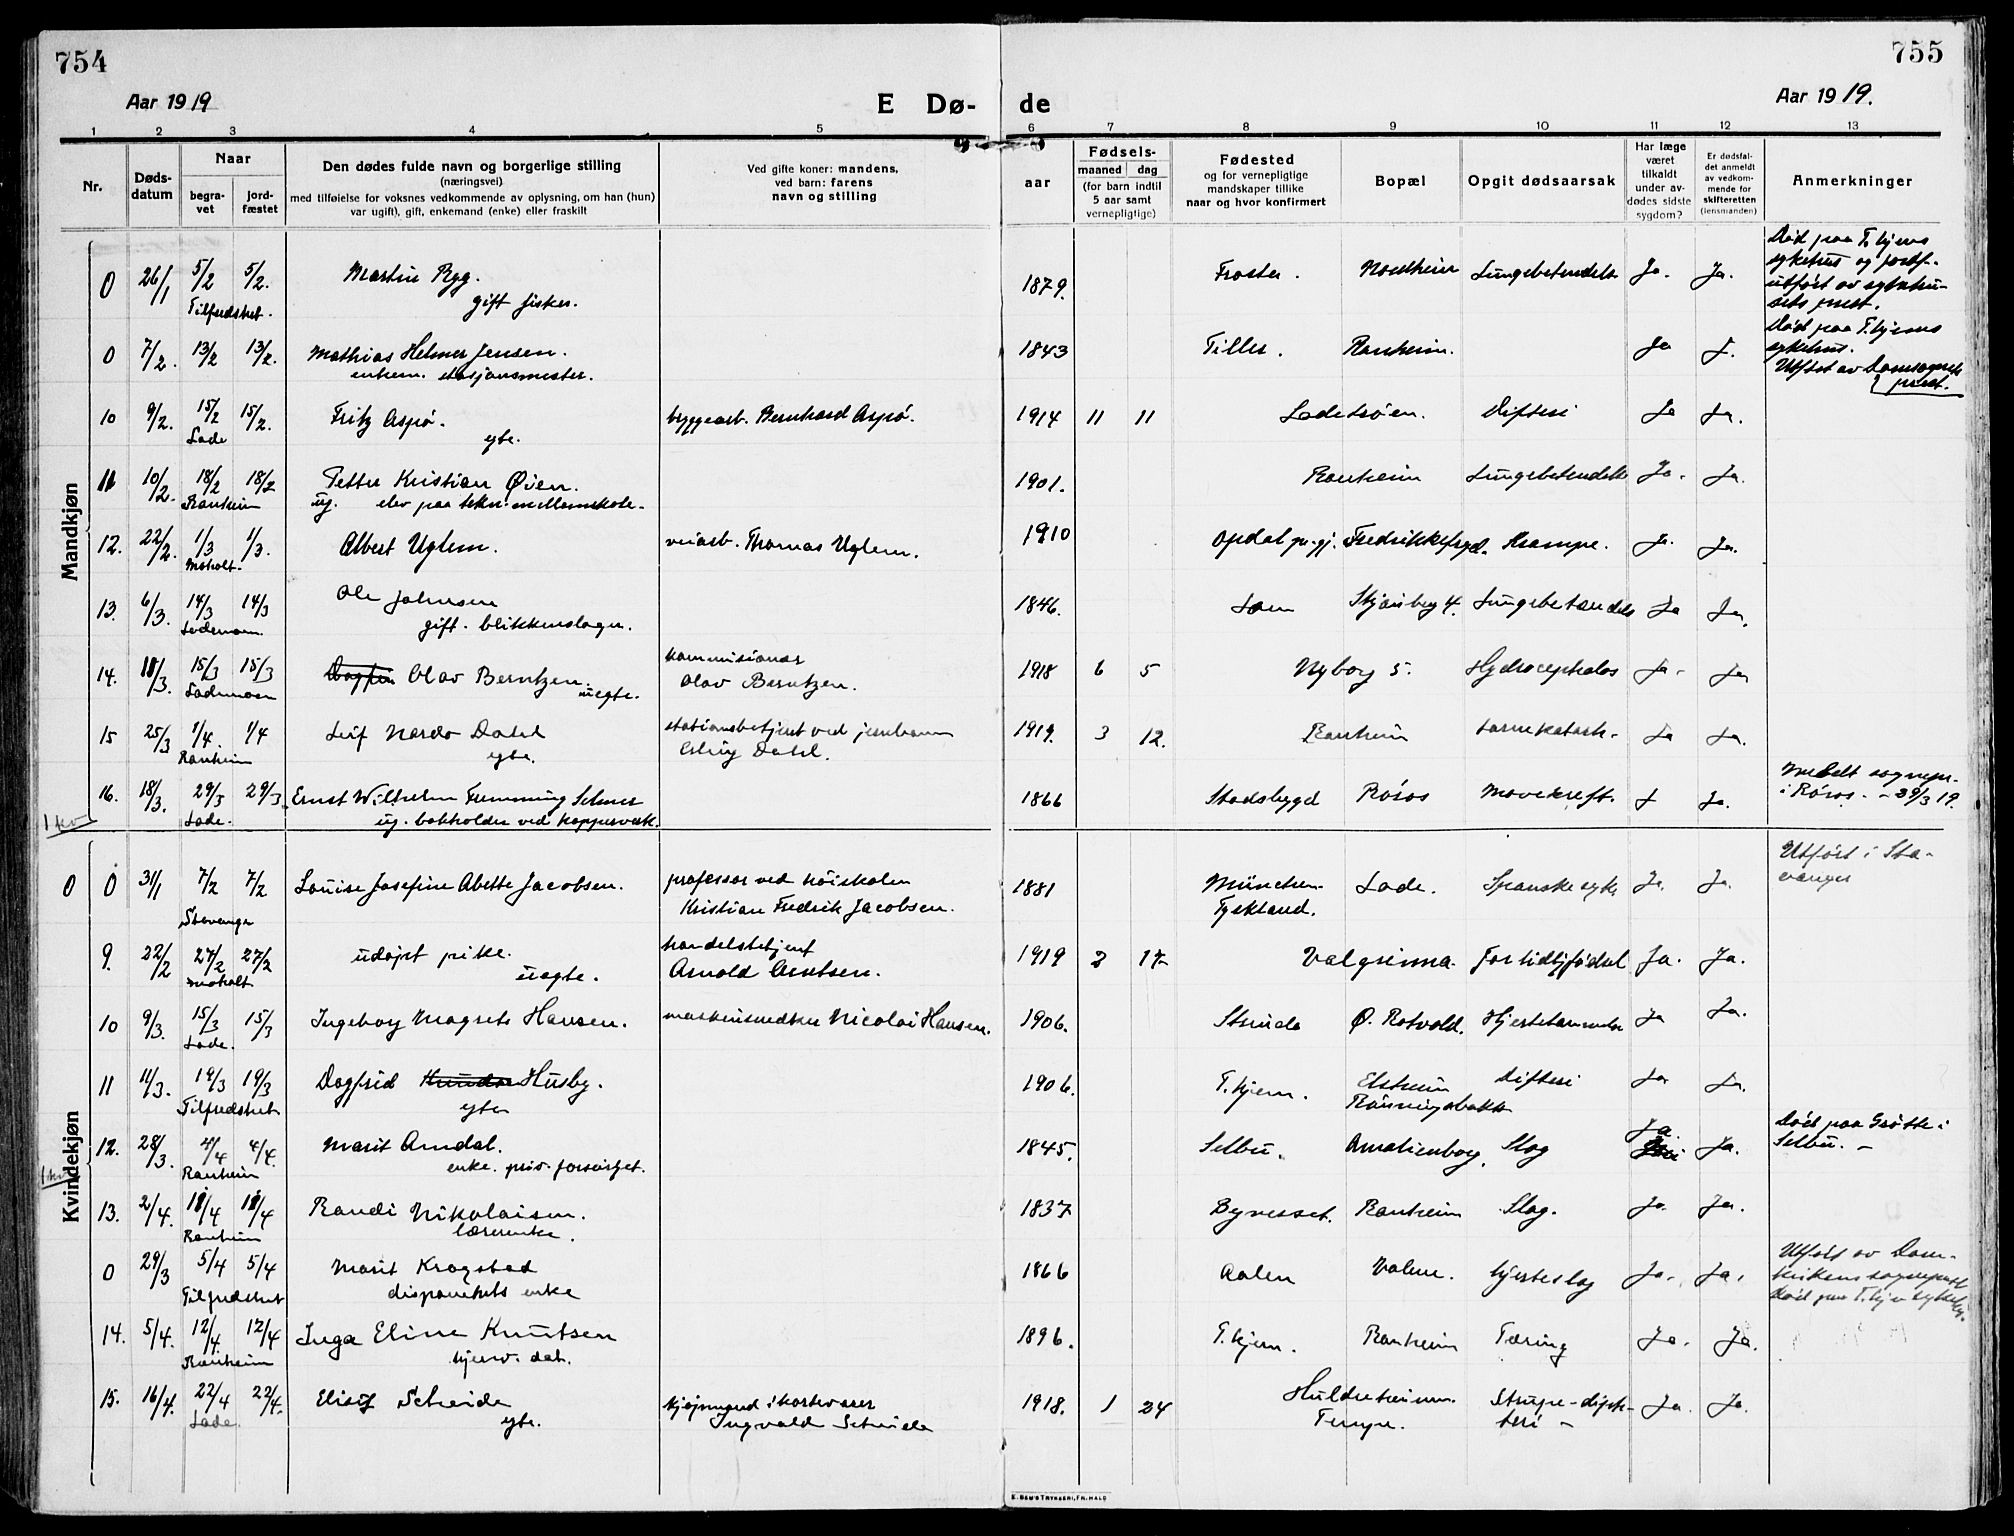 754
755
Aar 1919
E Dø-
de
Aar 1919.
1 2 3 4 5 6 7 8 9 10 11 12 13
Nr.
Døds-
datum
Naar
begra-
vet
jord-
fæstet
Den dødes fulde navn og borgerlige stilling
(næringsvei)
med tilføielse for voksnes vedkommende av oplysning, om han (hun)
var ugift), gift, enkemand (enke) eller fraskilt
Ved gifte koner: mandens,
ved barn: farens
navn og stilling
aar
Fødsels-
maaned dag
(for barn indtil
5 aar samt
vernepligtige)
Fødested
og for vernepligtige
mandskaper tillike
naar og hvor konfirmert
Bopæl
Opgit dødsaarsak
Har læge
været
tilkaldt
under av-
dødes sidste
sygdom?
Er dødsfal-
det anmeldt
av vedkom-
mende for
skifteretten
(lensmanden)
Anmerkninger
Mandkjøn
0 26/1 5/2 5/2. Martin Ryg. 1879. Frosta. Lungebetendelse Ja. Ja.
Tilfredshet. gift fisker.
Død paa T.hjems
sykehus og jordf.
utført av sykehu-
sets prest.
0 7/2. 13/2 13/2. Mathias Helmer Jensen. 1843 Tiller. Ranheim. Ja J.
enkem. stasjonsmester.
Død paa T.hjems
sykehus.
Utført av Domsognets
prest.
10 9/2. 15/2 15/2. Fritz Aspø. byggearb. Bernhard Aspø. 1914 11 11 Ladetrøen. Difteri Ja Ja.
Lade egte.
11 10/2. 18/2 18/2 Petter Kristian Øien. 1901. Ranheim Lungebetendelse Ja. Ja.
Ranheim ug. elev paa tekn. mellemskole.
12. 22/2. 1/3 1/3. Albert Uglem. veiarb. Thomas Uglem. 1910 Opdal pr.gj. Fredrikkefryd. Krampe. Ja. Ja.
Moholt.
13. 6/3. 14/3 14/3 Ole Johnsen 1846. Lom Lungebetendelse Ja Ja.
Lademoen. gift. blikkenslager.
14. 11/3. 15/3 15/3 Dagfin Olav Berntzen. kommisionær 1918 6 5 Nyborg 5. Hydrocephalus Ja. Ja
Lademoen uegte. Olav Berntzen.
15 25/3 1/4. 1/4 Leif Nardo Dahl stationsbetjent ved jernbanen 1919. 3 12. Ranheim Ja Ja.
Ranheim egte. Dahl.
16. 18/3. 29/3 29/3 Ernst Wilhelm Flemming Selmer 1866 Stadsbygd Røros Mavekreft. J Ja.
Lade. ug. bokholder ved kopperverk.
Meddelt sognepr.
i Røros. - 29/3 19.
Kvindekjøn
0 0 31/1 7/2 7/2 Louise Josefine Abette Jacobsen. professor ved høiskolen 1881 München Lade. Spanske syke Ja. Ja.
Stavanger Kristian Fredrik Jacobsen. Tyskland.
Utført i Sta-
vanger
9. 22/2 27/2 27/2 udøpt pike. handelsbetjent 1919 2 17 Valgrinna. For tidlig fødsel Ja. Ja.
Moholt uegte. Arnold Arntsen.
10 9/3. 15/3 15/3 Ingeborg Magrete Hansen. Nicolai Hansen. 1906. Strinda Ø. Rotvold. Ja Ja.
Lade.
11 11/3. 19/3 19/3 Dagfrid Husby. 1906. T.hjem. Elsheim Difteri Ja Ja.
Tilfredshet egte Rønningsbakk
12. 28/3. 4/4 4/4. Marit Amdal. 1845. Selbu. Amalienborg. Slag Ja. Ja.
Ranheim enke. priv. forsørget.
Død paa Grøtte i
Selbu. -
13. 2/4. 11/4 11/4 Randi Nikolaisen. 1837 Bynesset. Ranheim Slag. Ja. Ja.
Ranheim lærerenke.
0 29/3 5/4 5/4 Marit Kragstad 1866 Aalen hjerteslag Ja. Ja.
Tilfredshet disponents enke
Utført av Dom-
kirkens sogneprest
Død paa T.hjem sykehus.
14. 5/4. 12/4 12/4 Inga Eline Knutsen 1896. T.hjem. Ranheim Tæring Ja. Ja.
Ranheim hjemv. dat.
15. 16/4. 22/4 22/4. Scheide kjøpmand i kortevarer 1918. 1 24 Huldreheimen Strupe-difte- Ja. Ja.
Lade egte. Ingvald Scheide Tempe. teri -
E. BEM'S TRYKKERI, FR. HALD